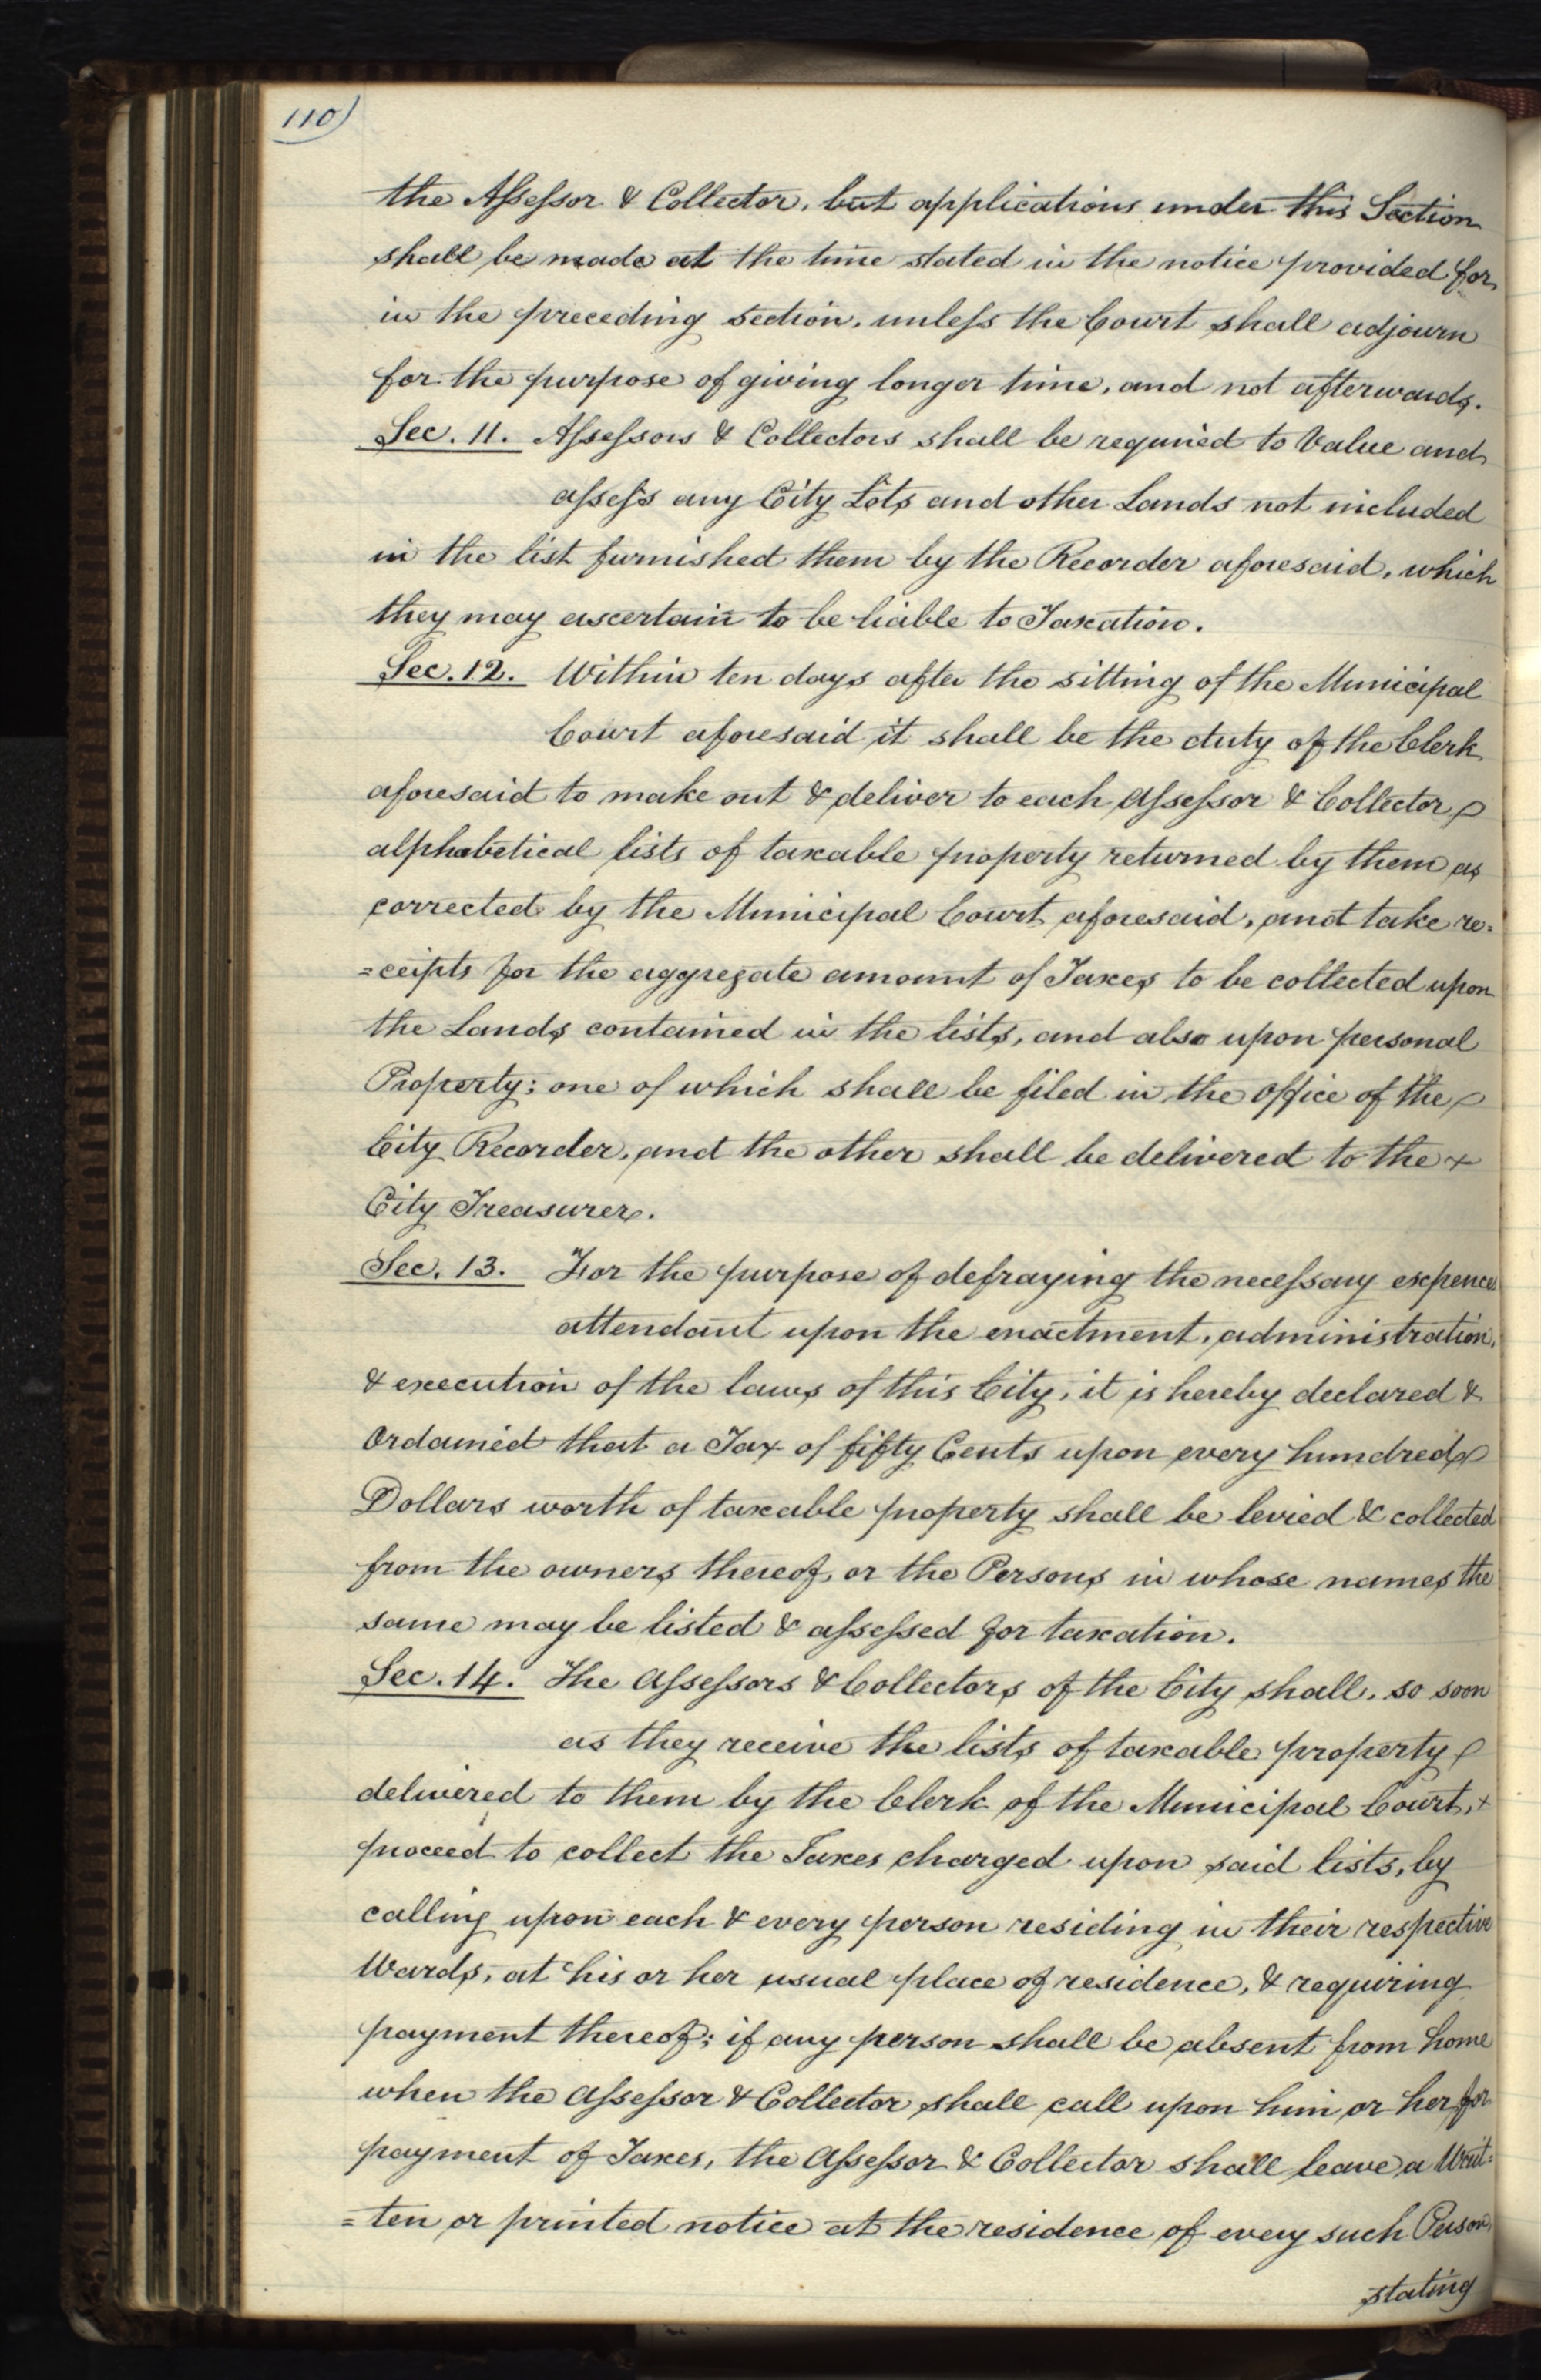 110)
the Assessor & Collector, but applications under this Section
shall be made at the time stated in the notice provided for,
in the preceding section, unless the Court shall adjourn
for the purpose of giving longer time, and not afterwards.
Sec. 11. Assessors & Collectors shall be required to Value and
assess any City Lots and other Lands not included
in the list furnished them by the Recorder aforesaid, which
they may ascertain to be liable to Taxation.
Sec. 12. Within ten days after the sitting of the Municipal
Court aforesaid it shall be the duty of the Clerk
aforesaid to make out & deliver to each Assessor & Collector
alphabetical lists of taxable property returned by them as
corrected by the Municipal Court aforesaid, and take re=
=ceipts for the aggregate amount of Taxes to be collected upon
the Lands contained in the lists, and also upon personal
Property; one of which shall be filed in the Office of the
City Recorder, and the other shall be delivered to the
City Treasurer.
Sec. 13. For the purpose of defraying the necessary expences
attendant upon the enactment, administration,
& execution of the laws of this City, it is hereby declared &
Ordained that a Tax of fifty Cents upon every hundred
Dollars worth of taxable property shall be levied & collected
from the owners thereof, or the Persons in whose names the
same may be listed & assessed for taxation.
Sec. 14. The Assessors & Collectors of the City shall, so soon
as they receive the lists of taxable property
delivered to them by the Clerk of the Municipal Court,
proceed to collect the Taxes charged upon said lists, by
calling upon each & every person residing in their respective
Wards, at his or her usual place of residence, & requiring
payment thereof; if any person shall be absent from home
when the Assessor & Collector shall call upon him or her for
payment of Taxes, the Assessor & Collector shall leave a Writ=
=ten or printed notice at the residence of every such Person,
stating